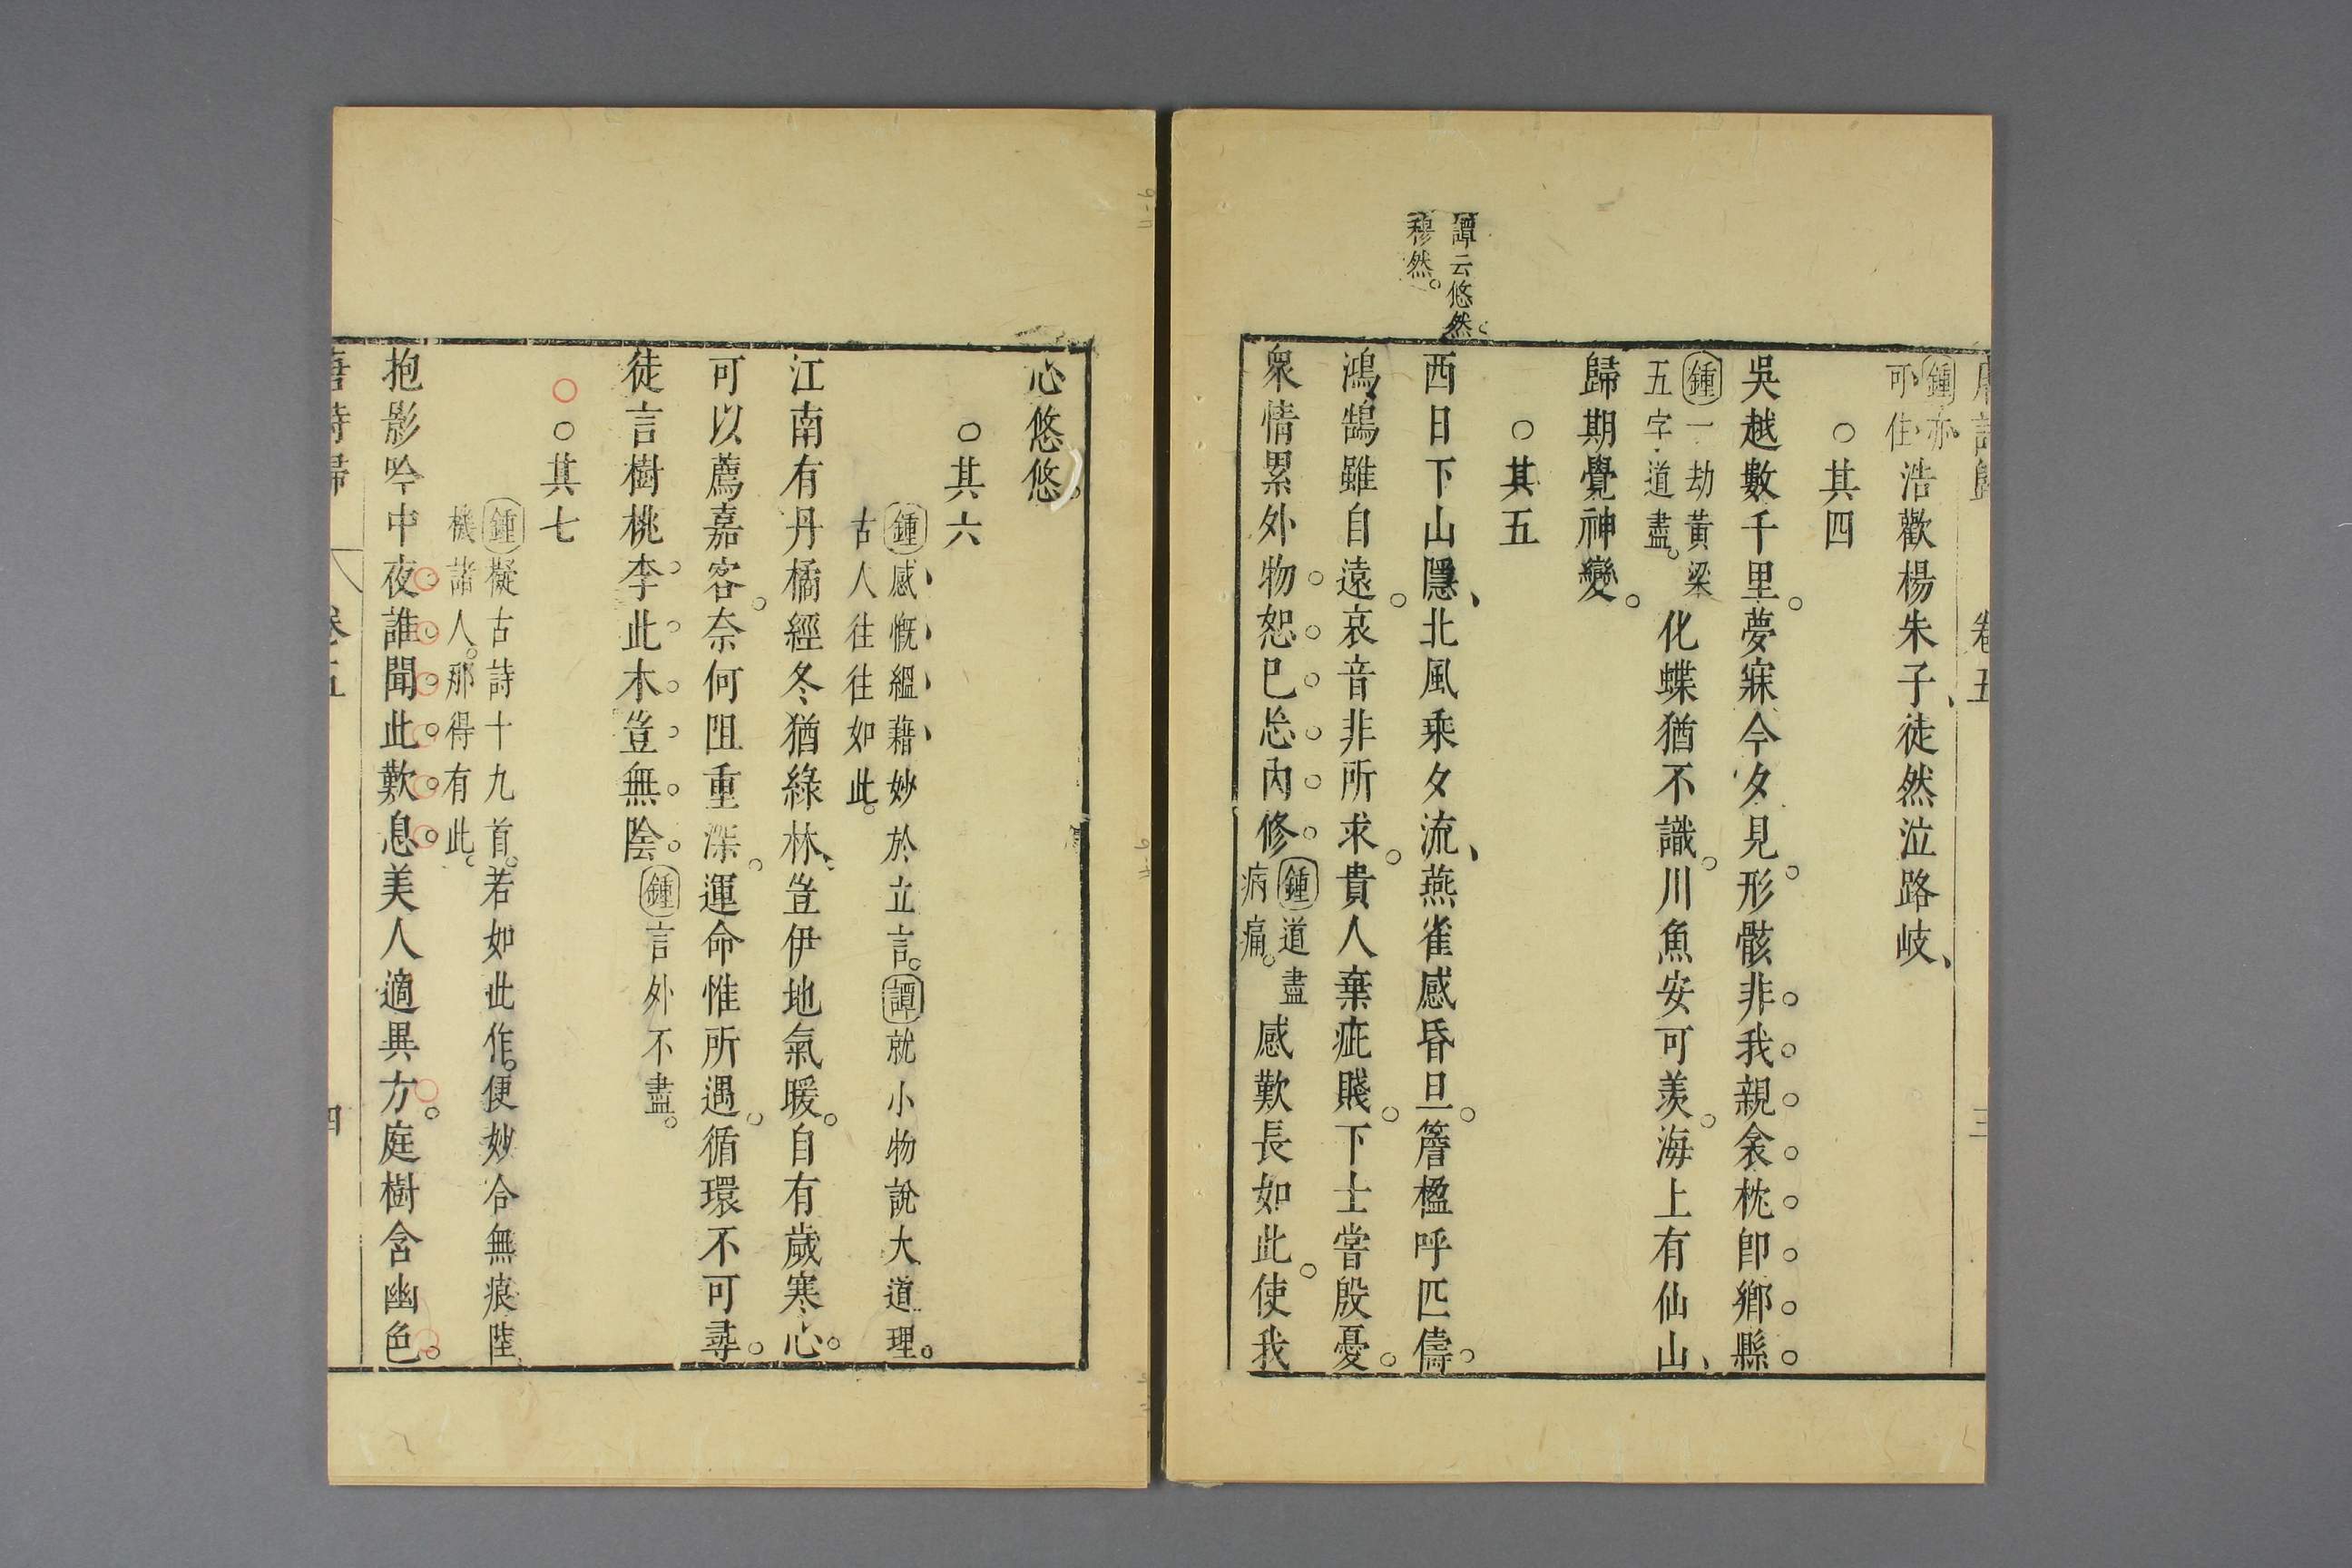 唐詩歸 卷五 三
鍾亦可住浩歡楊朱子徒然泣路岐
○其四
吳越數千里夢寐今夕見形骸非我親衾枕即鄉縣
鍾一劫黃梁五字道盡化蝶猶不識川魚安可羨海上有仙山
歸期覺神變
○其五
譚云悠然穆然
西日下山隱北風乘夕流燕雀感昏旦簷楹呼匹儔
鴻鵠雖自遠哀音非所求貴人棄疵賤下士嘗殷憂
衆情累外物恕巳忘內修鍾道盡病痛感歎長如此使我
心悠悠
○其六
鍾感慨縕藉妙於立言譚就小物說大道理
古人往往如此
江南有丹橘經冬猶綠林豈伊地氣暖自有歲寒心
可以薦嘉客奈何阻重深運命惟所遇循環不可尋
徒言樹桃李此木豈無陰鍾言外不盡
○其七
鍾擬古詩十九首若如此作便妙合無痕陸
機諸人那得有此
抱影吟中夜誰聞此歎息美人適異方庭樹含幽色
唐詩歸 卷五 四